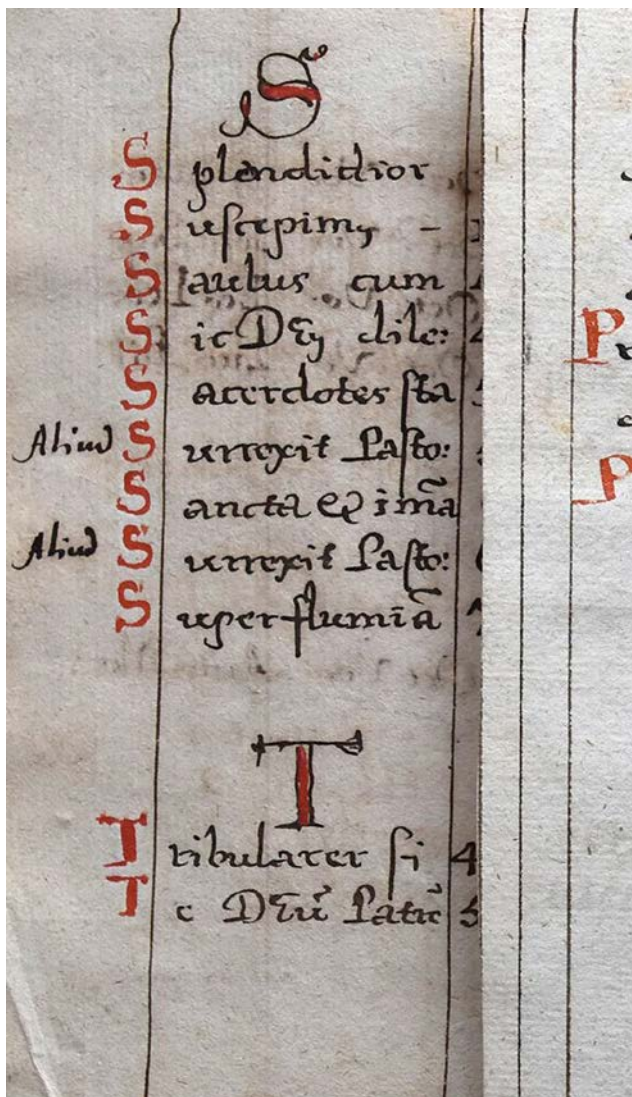 S
Splendidior
Suscepimus -
Saulus cum
Sic Deus dile:
Sacerdotes sta
Aliud Surrexit Pasto:
Sancta & im̃a
Aliud Surrexit Pasto:
Super flumīa
T
Tribularer si 4
Te Deũ Patrẽ 5
P
P